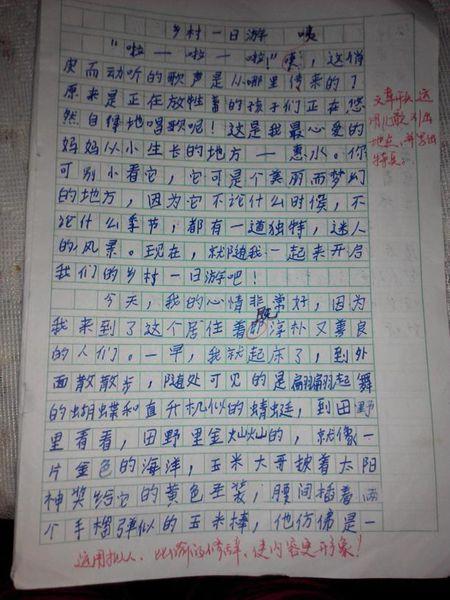 乡村一日游 咦
"啦—啦—啦!"咦,这俏
皮而动听的歌声是从哪里传来的?
原来是正在放牲畜的孩子们正在悠
然自得地唱歌呢!这是我最心爱的
妈妈从小生长的地方—惠水。你
可别小看它,它可是个美丽而梦幻
的地方,因为它不论什么时候,不
论什么季节,都有一道独特,迷人
的风景。现在,就随我一起来开启
我们的乡村一日游吧!
今天,我的心情非常好,因为
我来到了这个居住着那淳朴又善良
的人们。一早,我就起床了,到外
面散散步,随处可见的是翩翩起舞
的蝴蝶和直升机似的蜻蜓,到田野
里看看,田野里金灿灿的,就像一
片金色的海洋,玉米大哥披着太阳
神奖给它的黄色圣装,腰间插着两
个手榴弹似的玉米棒,他仿佛是一
文章开头运
用儿歌引出
地点,并写出
特点。
运用拟人、比喻的修辞,使内容更形象!